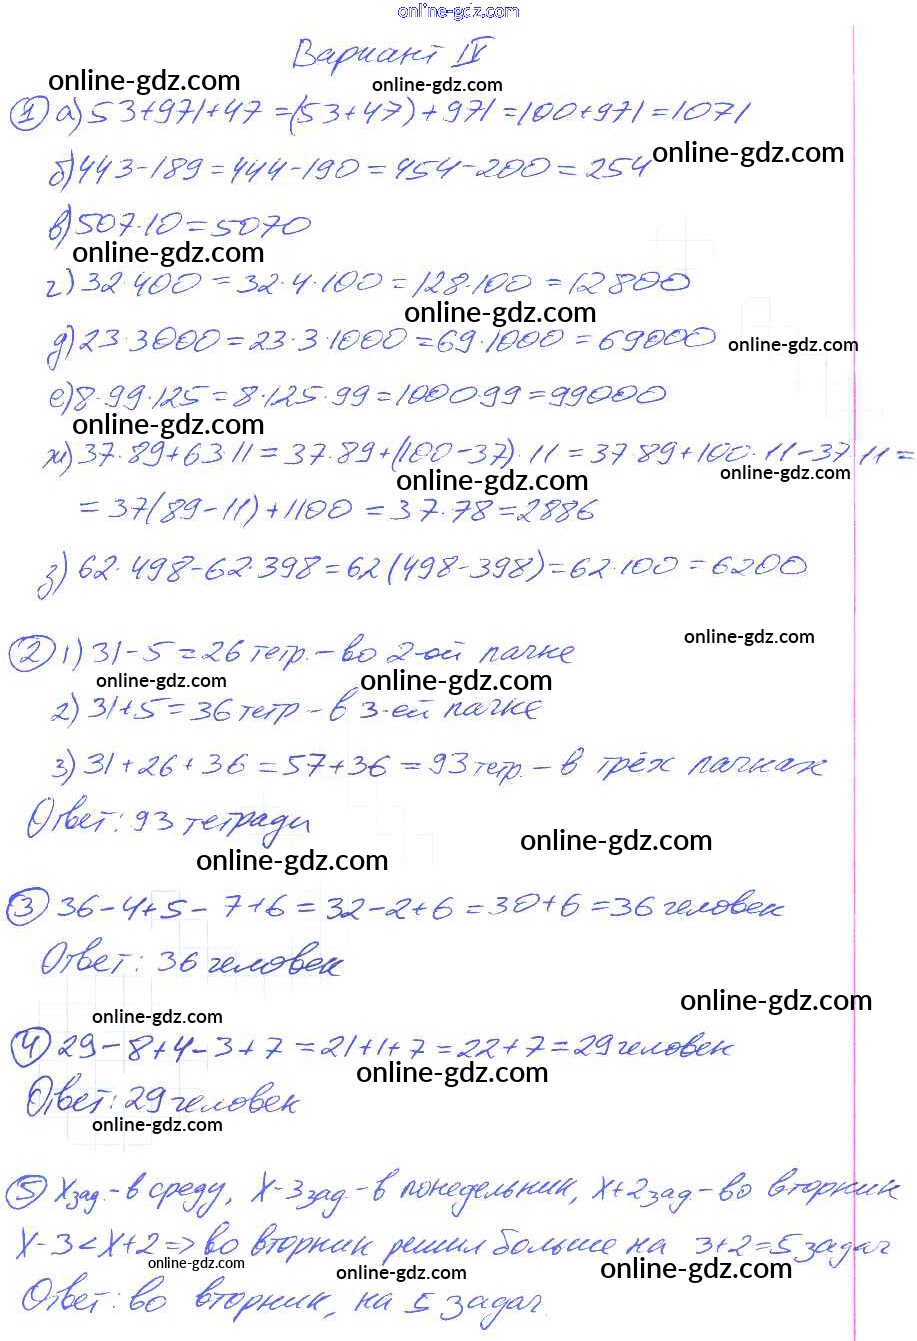 online-gdz.com
Вариант IV
online-gdz.com online-gdz.com
1 а) 53+971+47=(53+47)+971=100+971=1071
online-gdz.com
б) 443-189=444-190=454-200=254
в) 507·10=5070
online-gdz.com
г) 32·400=32·4·100=128·100=12800
online-gdz.com
д) 23·3000=23·3·1000=69·1000=69000
online-gdz.com
е) 8·99·125=8·125·99=100099=99000
online-gdz.com
ж) 37·89+63·11=37·89+(100-37)·11=37·89+100·11-37·11=
online-gdz.com online-gdz.com
=37(89-11)+1100=37·78=2886
з) 62·498-62·398=62(498-398)=62·100=6200
online-gdz.com
2 1) 31-5=26 тетр.-во 2-ой пачке
online-gdz.com online-gdz.com
2) 31+5=36 тетр-в 3-ей пачке
3) 31+26+36=57+36=93 тетр.-в трёх пачках
Ответ: 93 тетради
online-gdz.com online-gdz.com
3 36-4+5-7+6=32-2+6=30+6=36 человек
Ответ: 36 человек
online-gdz.com online-gdz.com
4 29-8+4-3+7=21+1+7=22+7=29 человек
online-gdz.com
Ответ: 29 человек
online-gdz.com
5 X зад.-в среду, X-3 зад.-в понедельник, X+2 зад-во вторник
X-3<X+2=> во вторник решил больше на 3+2=5 задач
online-gdz.com online-gdz.com online-gdz.com
Ответ: во вторник, на 5 задач.